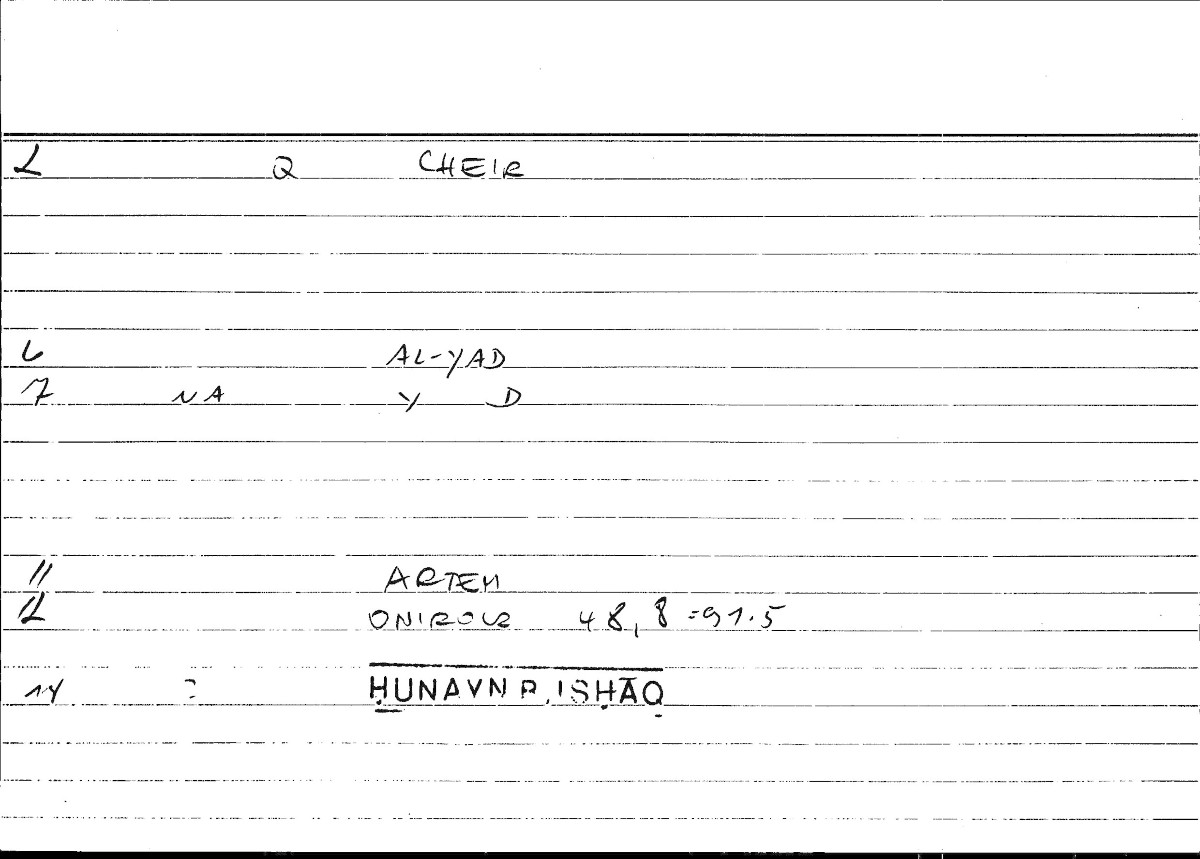 2 Q CHEIR
6 AL-YAD
7 NA Y D
11 ARTEM
12 ONIROCR 48,8=91.5
14 ḤUNAYN B. ISḤĀQ